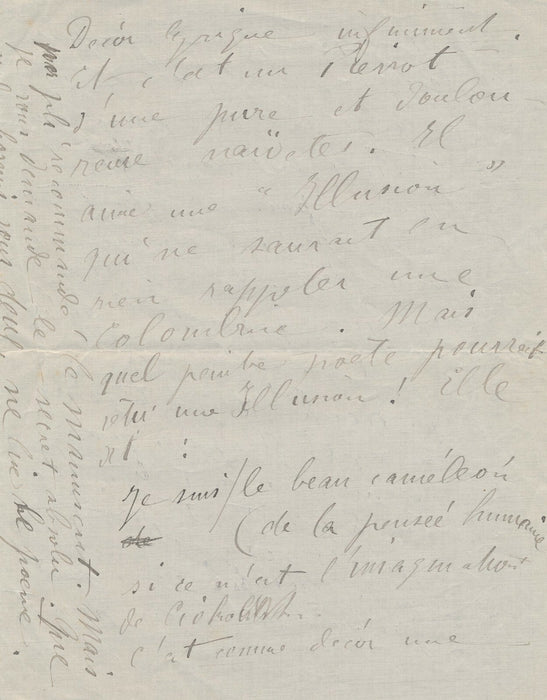 Décor lyrique infiniment.
et c'est un Pierrot
d'une pure et doulou-
reuse naïvetés. Il
aime une "Illusion"
qui ne saurait en
rien rappeler une
Colombine. Mais
quel peintre poete pourrait
vêtir une Illusion! Elle
dit :
Je suis / le beau caméléon
(de la pensée humaine
si ce n'est l'imagination
de
c'est comme decór une
par pli recommandé le manuscrit. Mais
je vous demande le secret absolu. Que
ne lise le poeme.